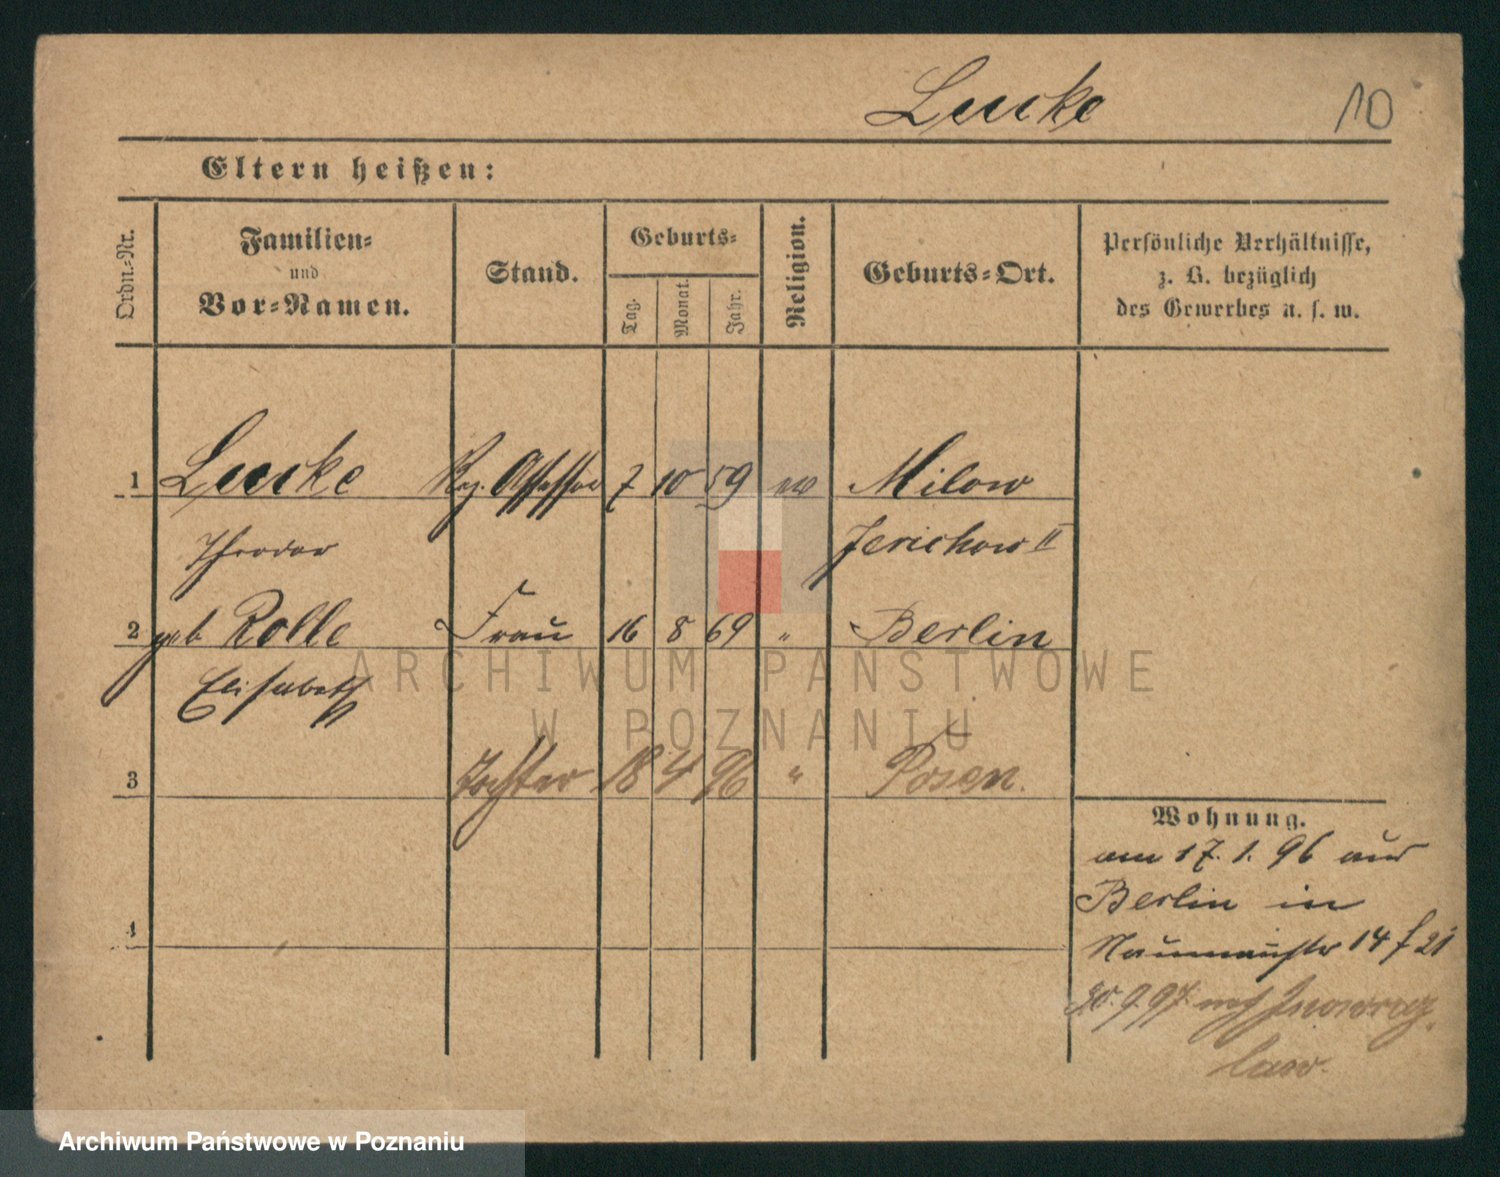 Lucke 10
Eltern heißen:
Ordn.-Nr.
Familien-
und
Vor-Namen.
Stand.
Geburts-
Tag.
Monat.
Jahr.
Religion.
Geburts-Ort.
Persönliche Verhältnisse,
z. B. bezüglich
des Gewerbes u. s. w.
1 Lucke Reg. Assessor 7 10 59 ev Milow
Theodor Jerichow II
2 geb Rolle Frau 16 8 69 " Berlin
Elisabeth
ARCHIWUM PAŃSTWOWE
W POZNANIU
3 Tochter 18 4 96 " Posen.
Wohnung.
am 17. 1. 96 aus
Berlin in
4 Naumannstr 14
9 97 nach Inowraz-
law.
Archiwum Państwowe w Poznaniu